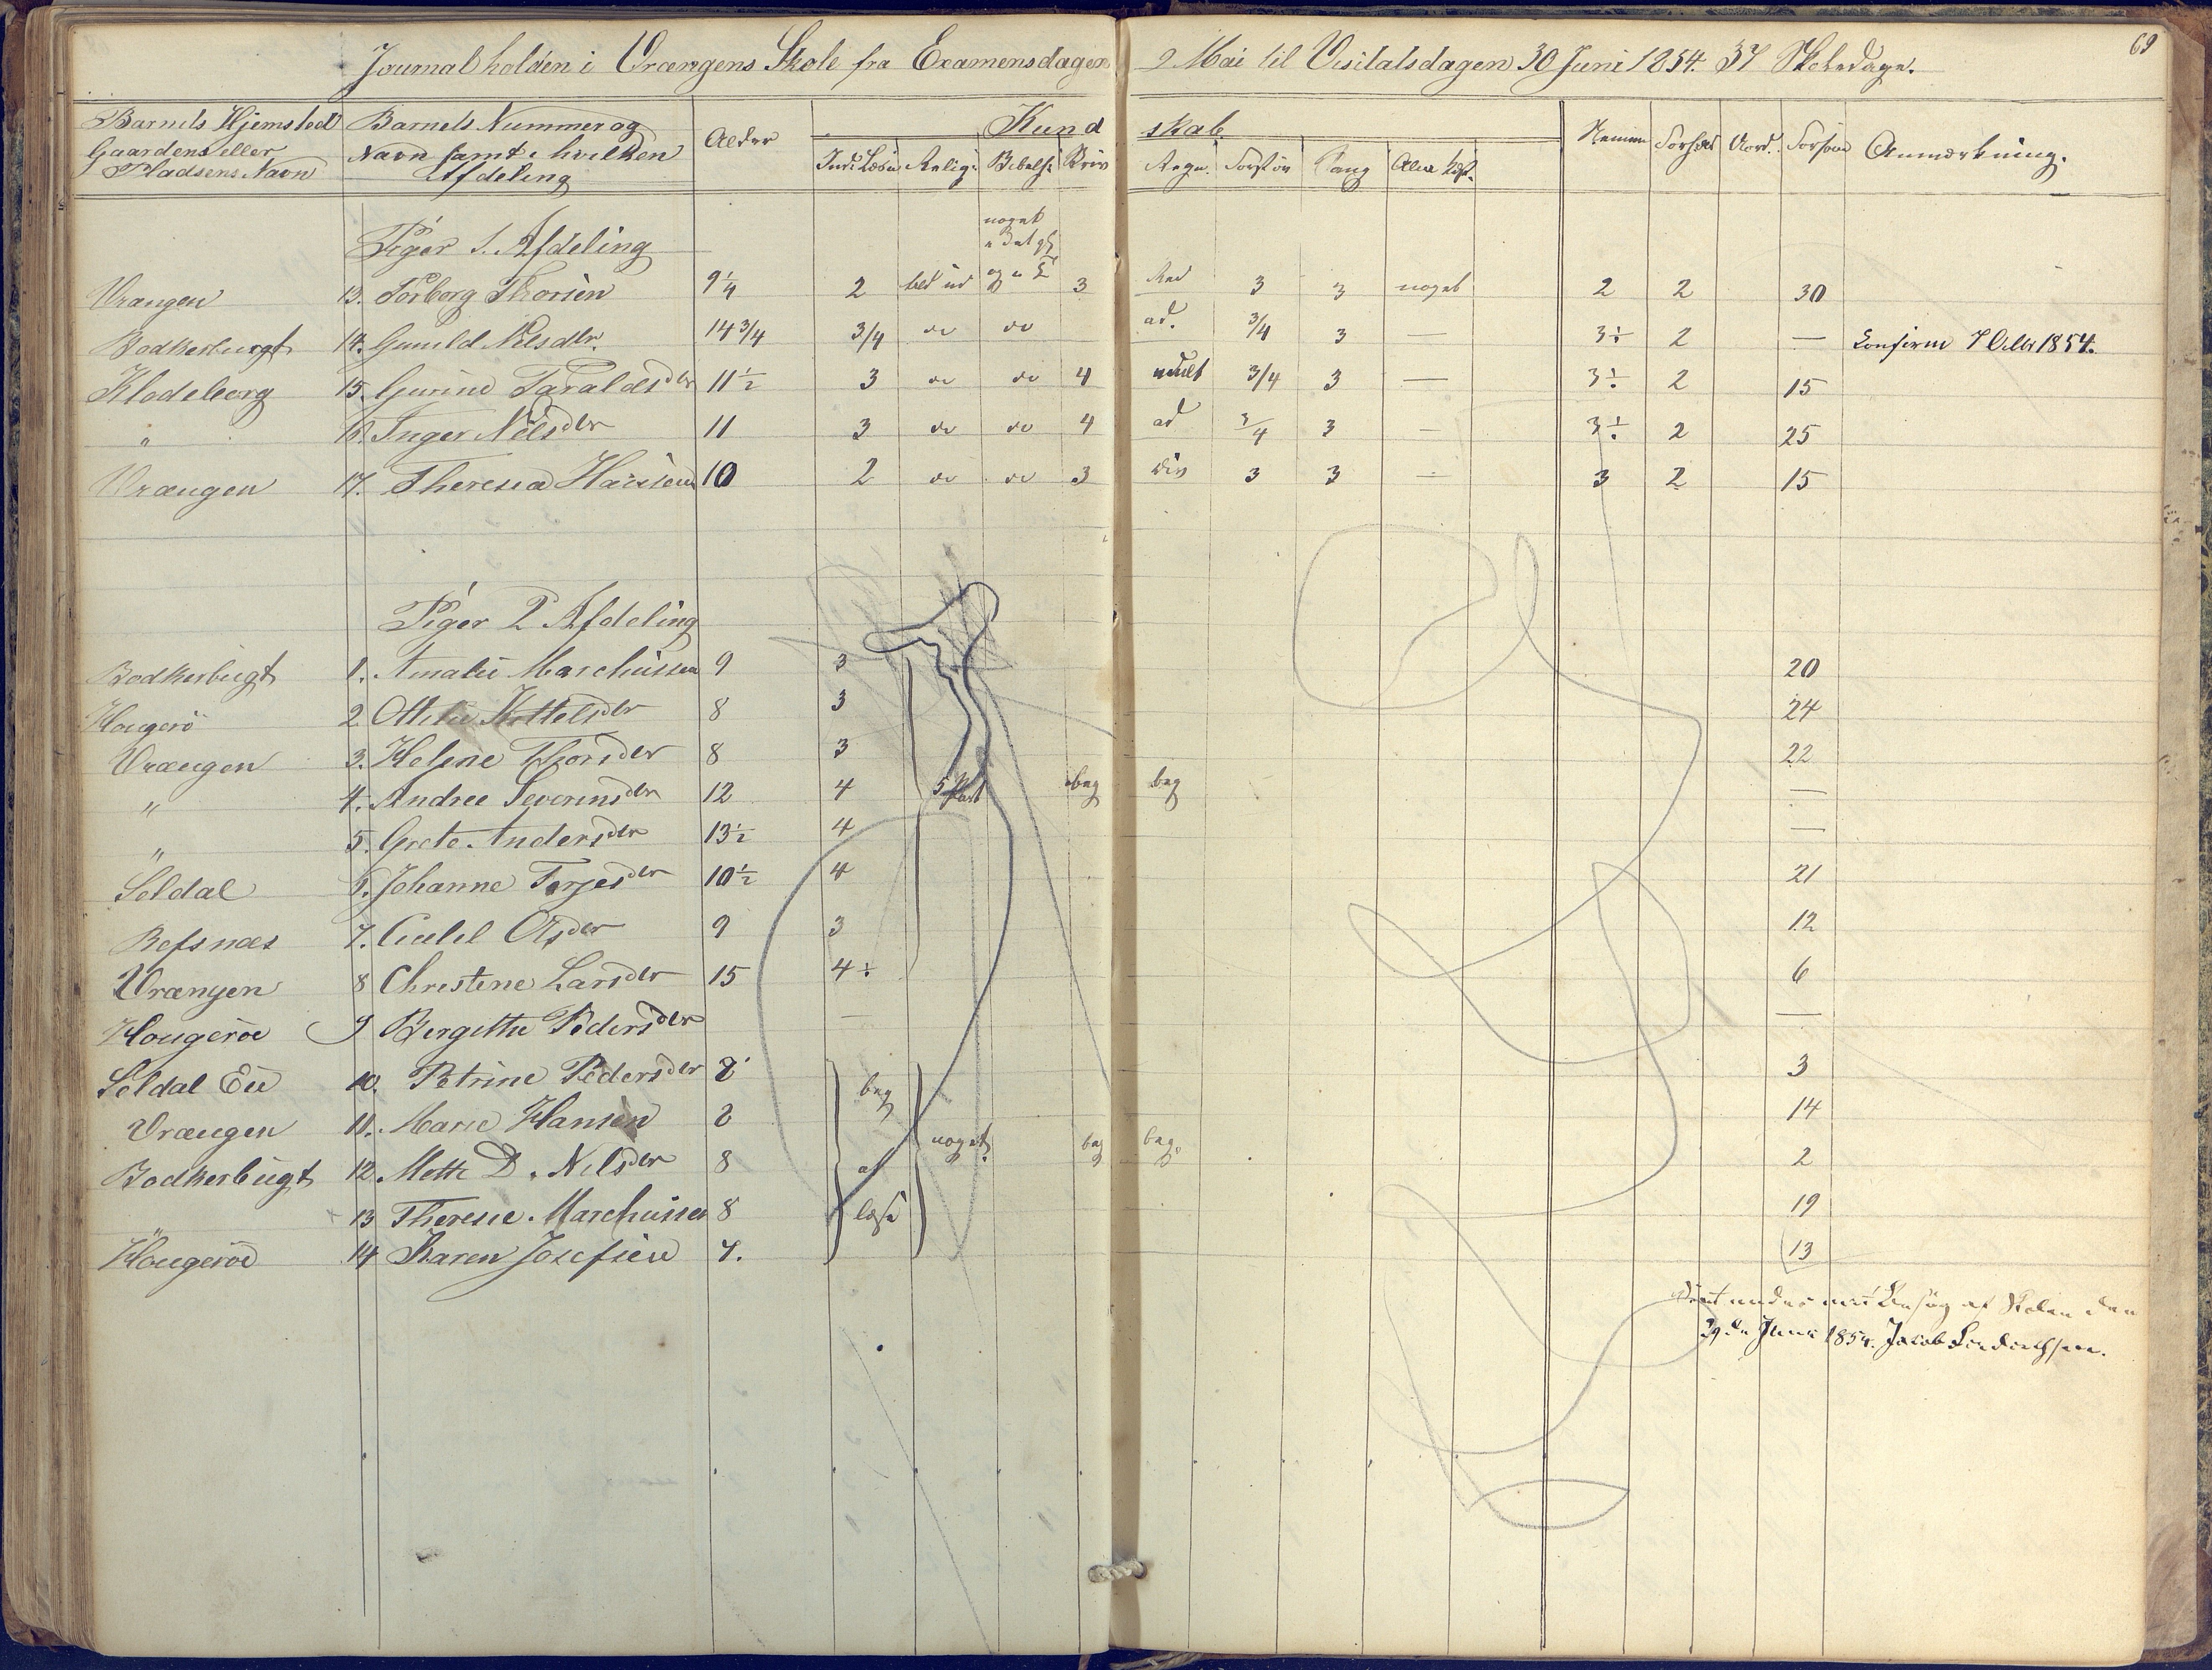 69
Journal holden i Vrængens Skole fra Examensdagen 2 Mai til Visitatsdagen 30 Juni 1854. 37 Skoledage.
Barnets Hjemsted Gaardens eller Pladsens Navn | Barnets Nummer og Navn samt i hvilken Afdeling | Alder | Kundskab | Nemme | Forhold | Vord. | Forsøm | Anmærkning.
Indl Læsn | Relig: | Bibelh | Skriv | Regn. | Forst øv | Sang | Alm
Piger 1. Afdeling
noget
Vrængen 13. Torborg Thorsen 9 1/4 2 3 3 3 noget 2 2 30
Bodkerbugt 14. Gunild Nilsdtr. 14 3/4 3/4 do do ad. 3/4 3 — 3÷ 2 — Confirm 7 Octbr 1854.
Klodeberg 15. Gurine Taraldsdtr 11 1/2 3 do do 4 mult 3/4 3 — 3÷ 2 15
" 16. Inger Nilsdtr 11 3 do do 4 ad 3/4 3 — 3÷ 2 25
Vrængen 17. Theresia Hansen 10 2 do do 3 div 3 3 — 3 2 15
Piger 2 Afdeling
Bodkerbugt 1. Amalie Marchussen 9 3 20
Hougerö 2 Ottilie Kittelsdtr 8 3 24
Vrængen 3. Helene Thorsdtr 8 3 22
" 4. Andrea Severinsdtr 12 4 5 Part beg beg —
" 5. Grete Andersdtr 13 1/2 4 —
Soldal 6. Johanne Terjesdtr 10 1/2 4 21
Refsnæs 7. Olsdtr 9 3 12
Vrængen 8 Christine Larsdtr 15 4÷ 6
Hougeröe 9 Bergitthe Pedersdtr — —
Soldal Eie 10. Petrine Pedersdtr 8 beg 3
Vrængen 11. Marie Hansen 8 14
Bodkerbugt 12. Mette D. Nilsdtr 8 at noget beg beg. 2
" 13 Theresie Marchussen 8 læse 19
Hougeröe 14 Karen Josefsen 7. 13
under mit Besøg af Skolen den
29de Juni 1854. Jacob